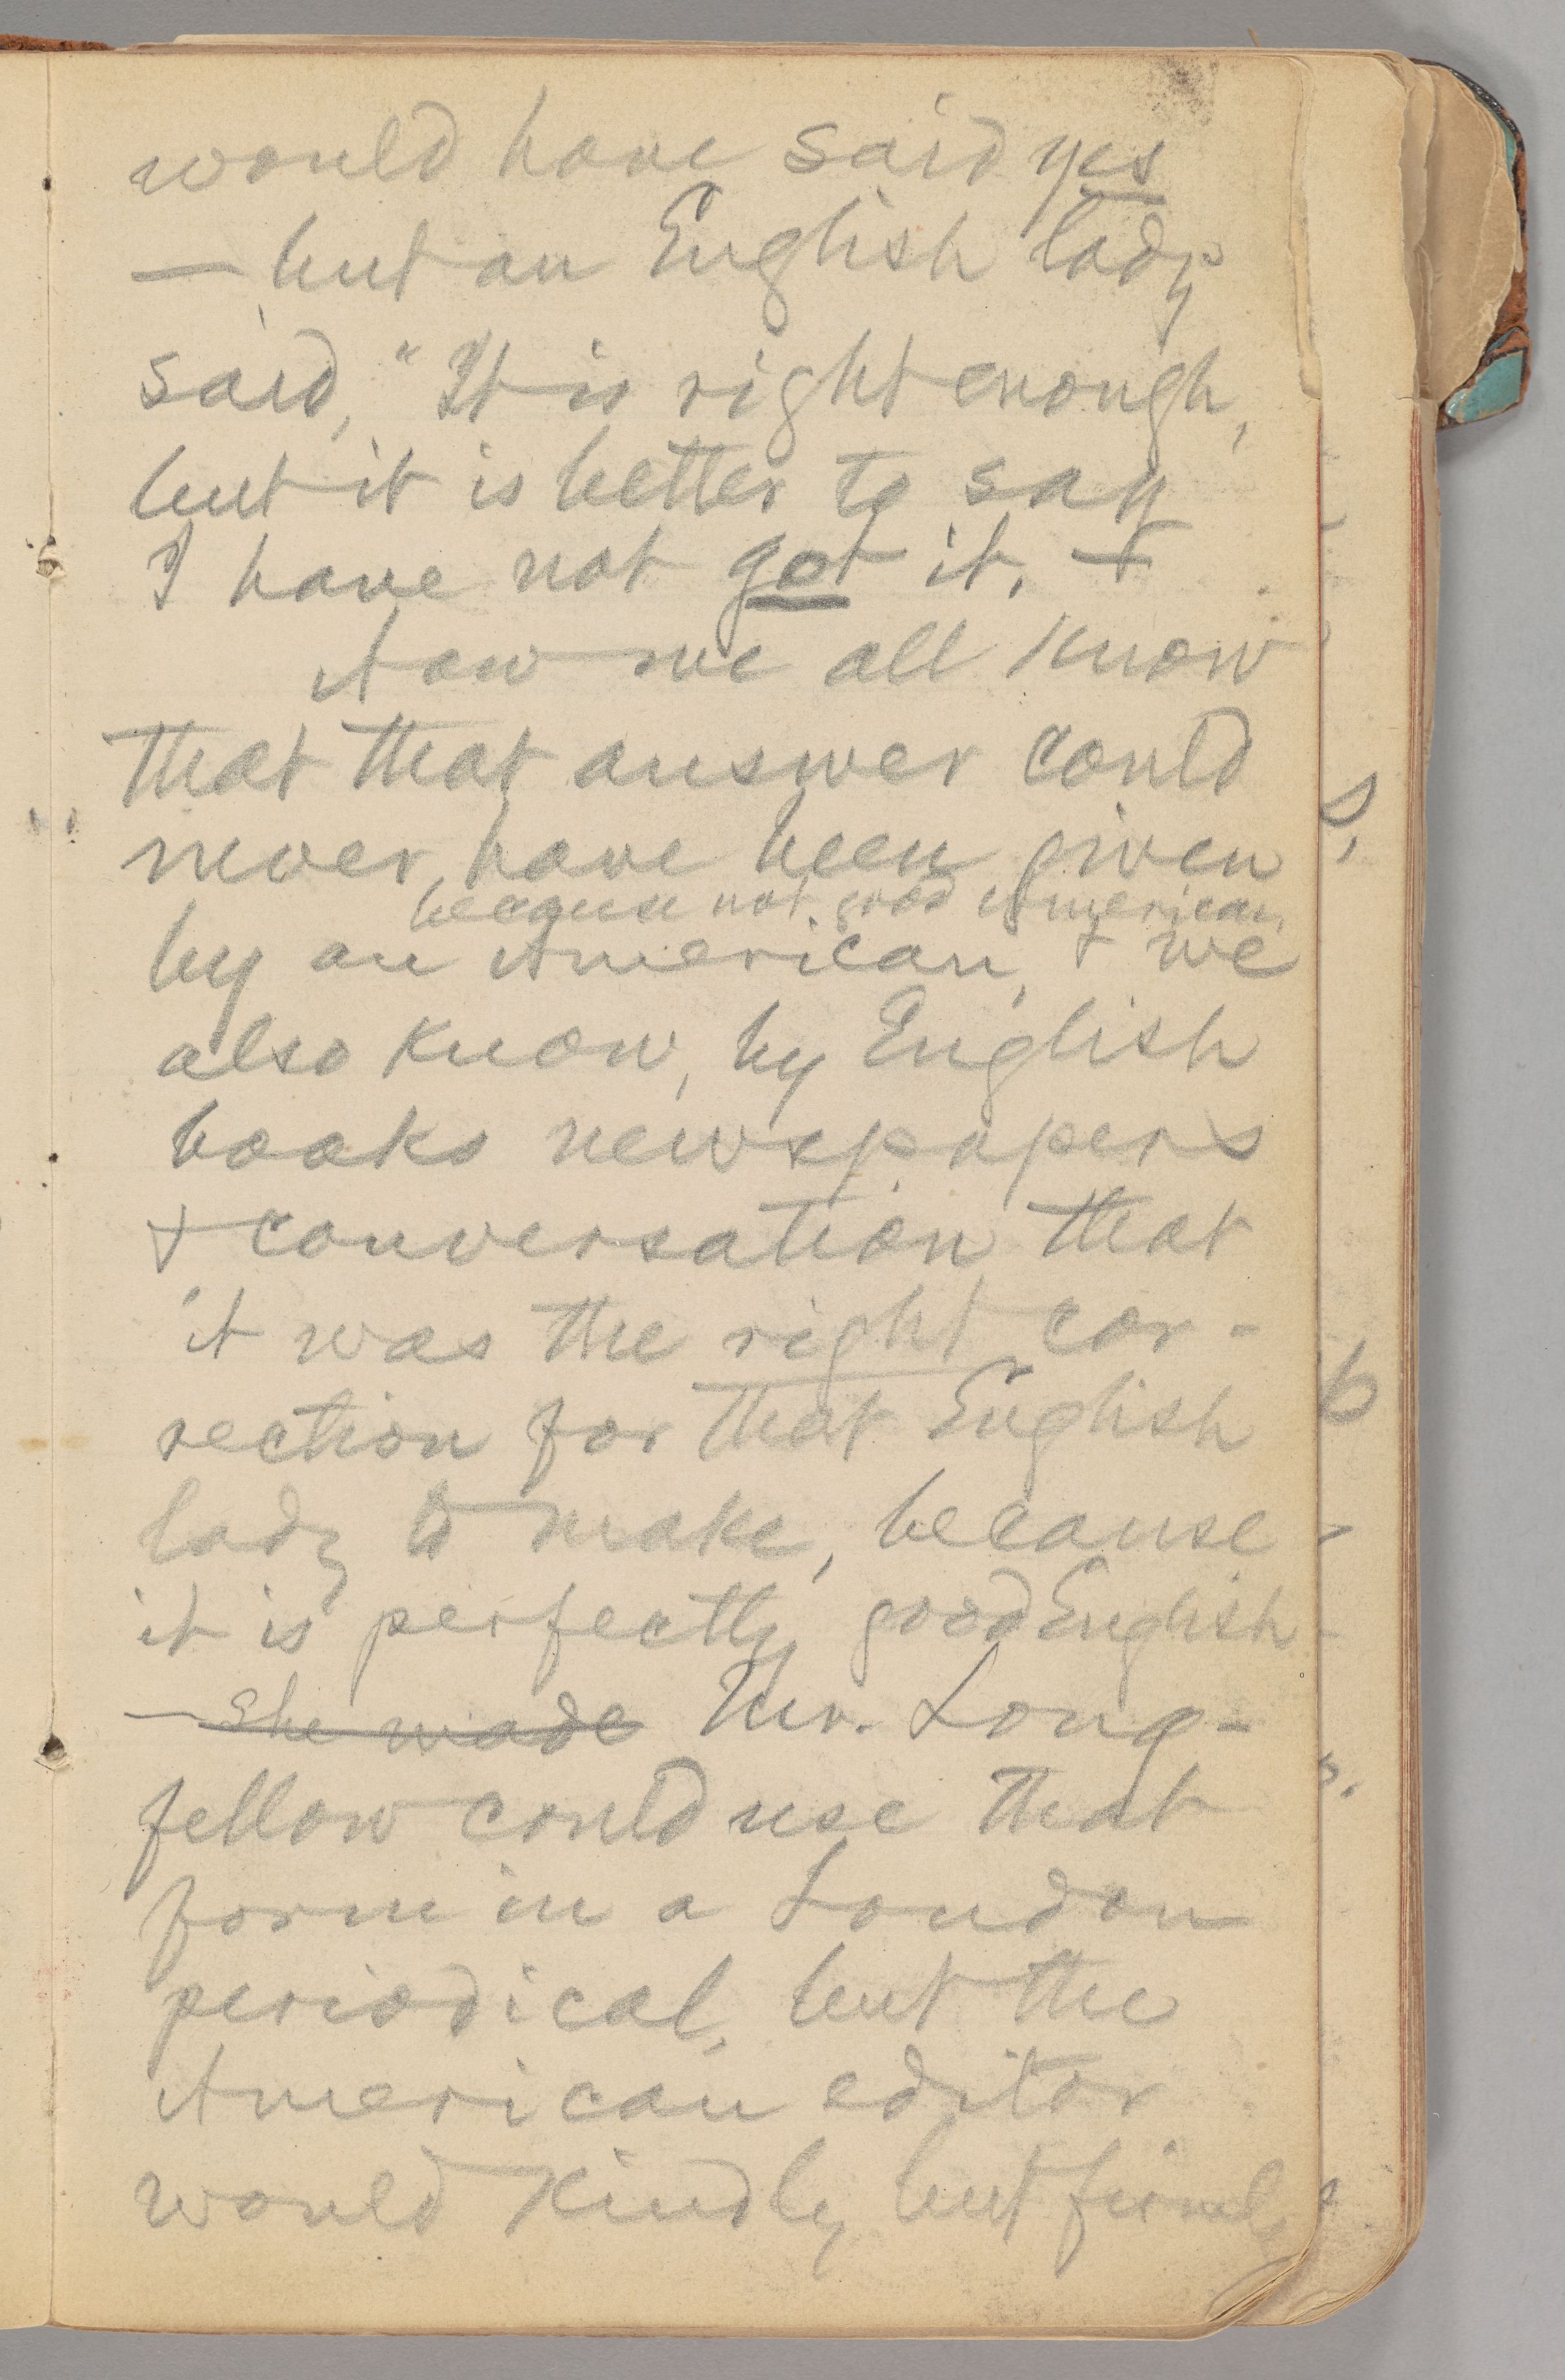 would have said yes
— but an English lady
said, "It is right enough,
but it is better to say
I have not got it. +
Now we all know
that that answer could
never have been given
because not good American,
by an American, + we
also know, by English
books newspapers
+ conversation that
it was the right cor-
rection for that English
lady to make, because
it is perfectly good English
— She made Mr. Long-
fellow could use that
form in a London
periodical, but the
American editor
would kindly but firmly